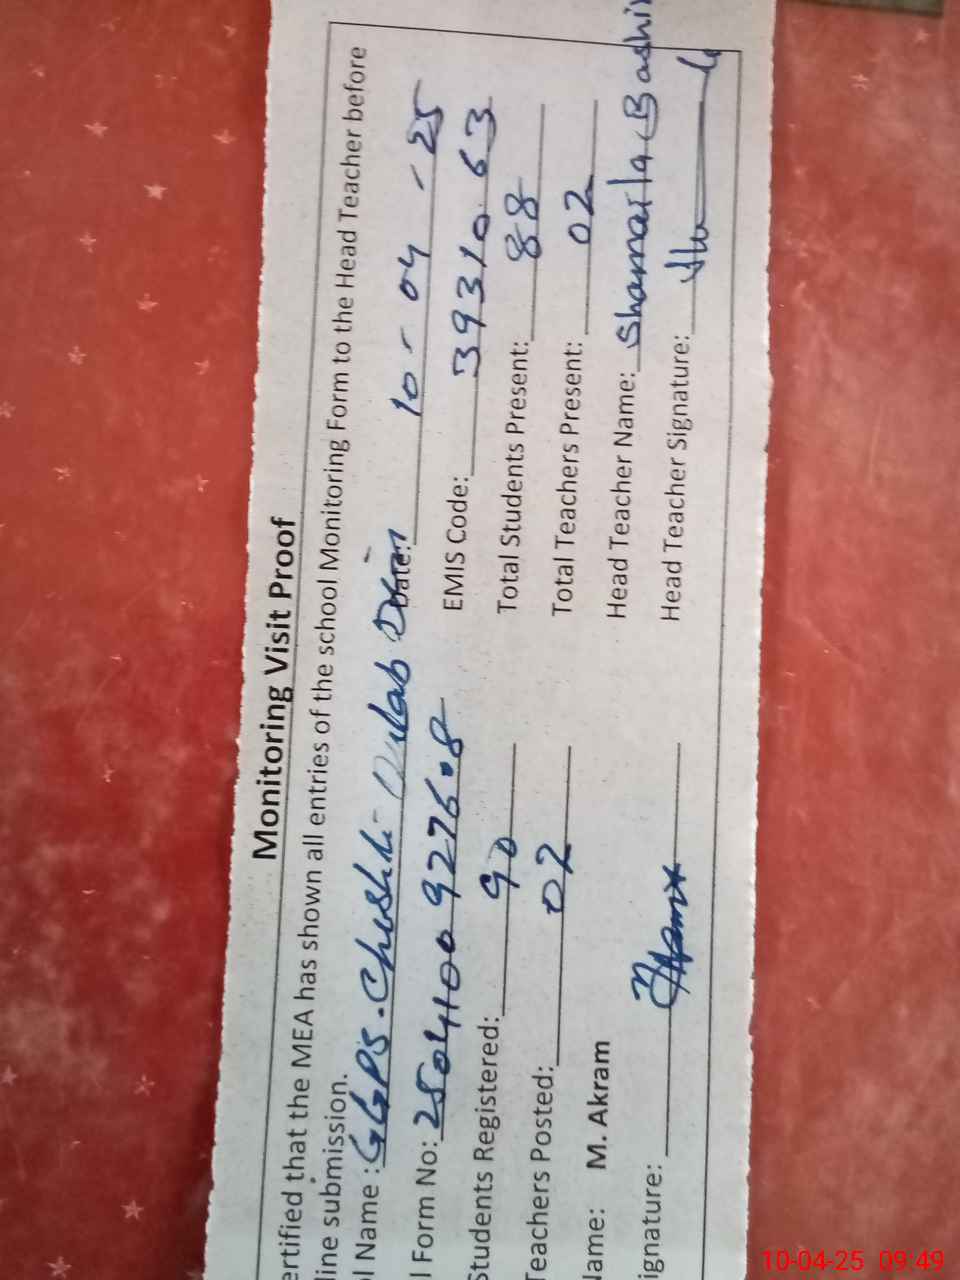 Monitoring Visit Proof
ertified that the MEA has shown all entries of the school Monitoring Form to the Head Teacher before
line submission.
l Name : GGPS. Chishti- Qulab Date: 10-04-25
l Form No: 2504100927608 EMIS Code: 39310063
Students Registered: 90 Total Students Present: 88
Teachers Posted: 02 Total Teachers Present: 02
Name: M. Akram Head Teacher Name: Shamaila Bashir
ignature: Head Teacher Signature:
10-04-25 09:49